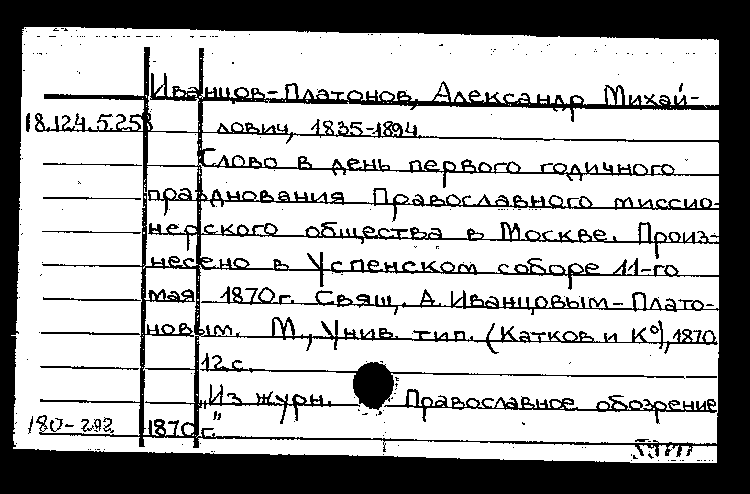 Иванцов-Платонов, Александр Михай-
18.124.5.258 лович, 1835-1894.
Слово в день первого годичного
празднования Православного миссио-
нерского общества в Москве. Произ-
несено в Успенском соборе 11-го
мая 1870г. Свящ. А. Иванцовым-Плато-
новым. М., Унив. тип. (Катков и К°), 1870
12 с.
„Из журн. Православное обозрение
180-202 1870 г."